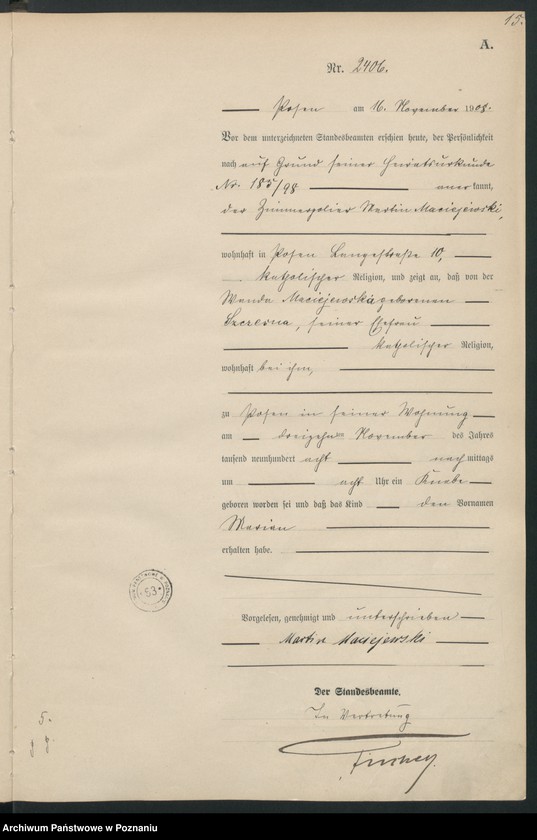 15.
A.
Nr. 2406.
Posen am 16. November 1908.
Vor dem unterzeichneten Standesbeamten erschien heute, der Persönlichkeit
nach auf Grund seiner Heiratsurkunde
Nr. 185/98 anerkannt,
der Zimmerpolier Martin Maciejewski,
wohnhaft in Posen Langestraße 10,
katholischer Religion, und zeigt an, daß von der
Wanda Maciejewska geborenen
Szczesna, seiner Ehefrau
katholischer Religion,
wohnhaft bei ihm,
zu Posen in seiner Wohnung
am dreizehnten November des Jahres
tausend neunhundert acht nachmittags
um acht Uhr ein Knabe
geboren worden sei und daß das Kind den Vornamen
Marian
erhalten habe.
Vorgelesen, genehmigt und unterschrieben
Martin Maciejewski
Der Standesbeamte.
In Vertretung
63
5.
Archiwum Państwowe w Poznaniu